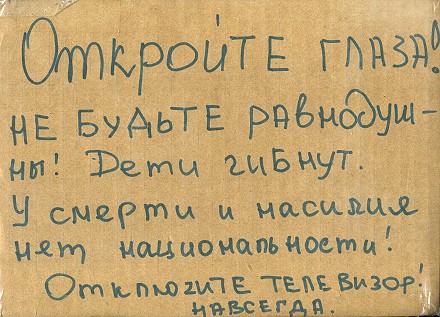 Откройте глаза!
не будьте равнодуш-
ны! Дети гибнут.
У смерти и насилия
нет национальности!
Отключите телевизор!
навсегда.